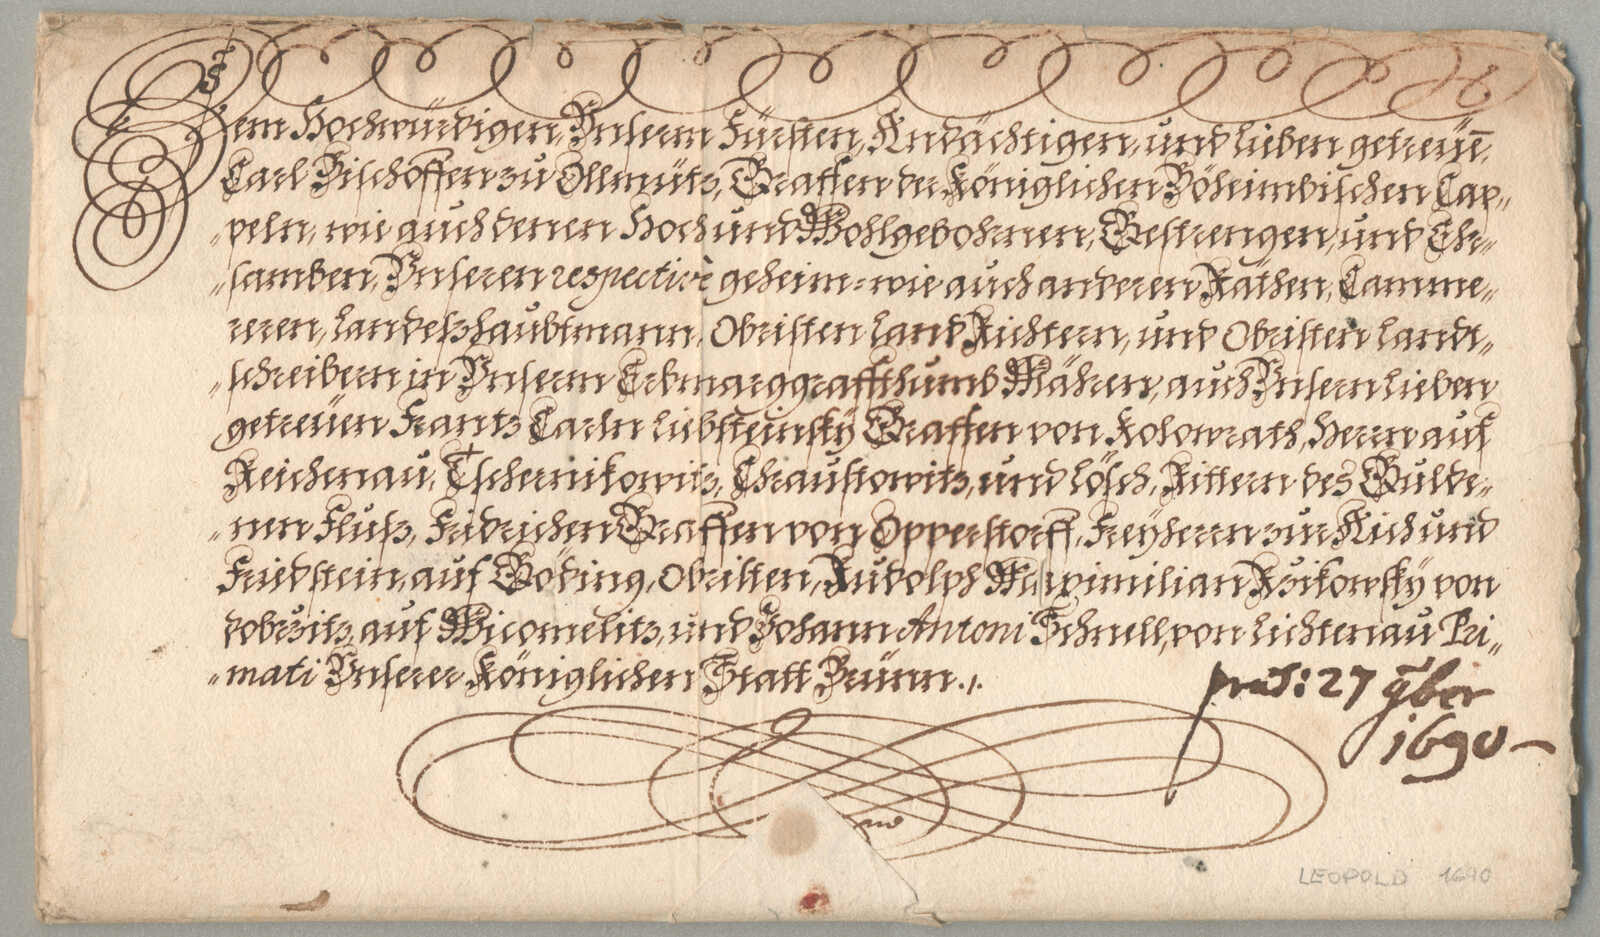 Dem Hochwürdigen, Unserm Fürsten, Andächtigen, und lieben getreüē,
Carl Bischoffen zu Ollmütz, Graffen der Königlichen Böheimbischen Cap„
„peln, wie auch denen Hoch und Wohlgebohrnen, Gestrengen, und Ehr„
„samben, Unseren respectivè geheim= wie auch anderen Räthen, Camme„
reren, Landeßhaubtmann, Obristen Land Richtern, und Obristen Landt„
„schreibern in Unserm Erbmarggraffthumb Mähren, auch Unsern lieben
getreüen Frantz Carln Liebsteinsky Graffen von Kolowrath, Herrn auf
Reichenau, Tschernikowitz, Chraustowitz, und Lösch, Rittern des Gulde„
„nen Fluß, Fridrichen Graffen von Opperstorff, Freyherrn zur Aich und
Friedstein, auf Göding, Obristen, Rudolph Maximilian Rzikowsky von
Dobrzitz, auf Micomelitz, und Johann Antoni Schnell, von Lichtenau Pri„
„mati Unserer Königlichen Statt Brünn.
præs: 27 9ber
1690
LEOPOLD 1690